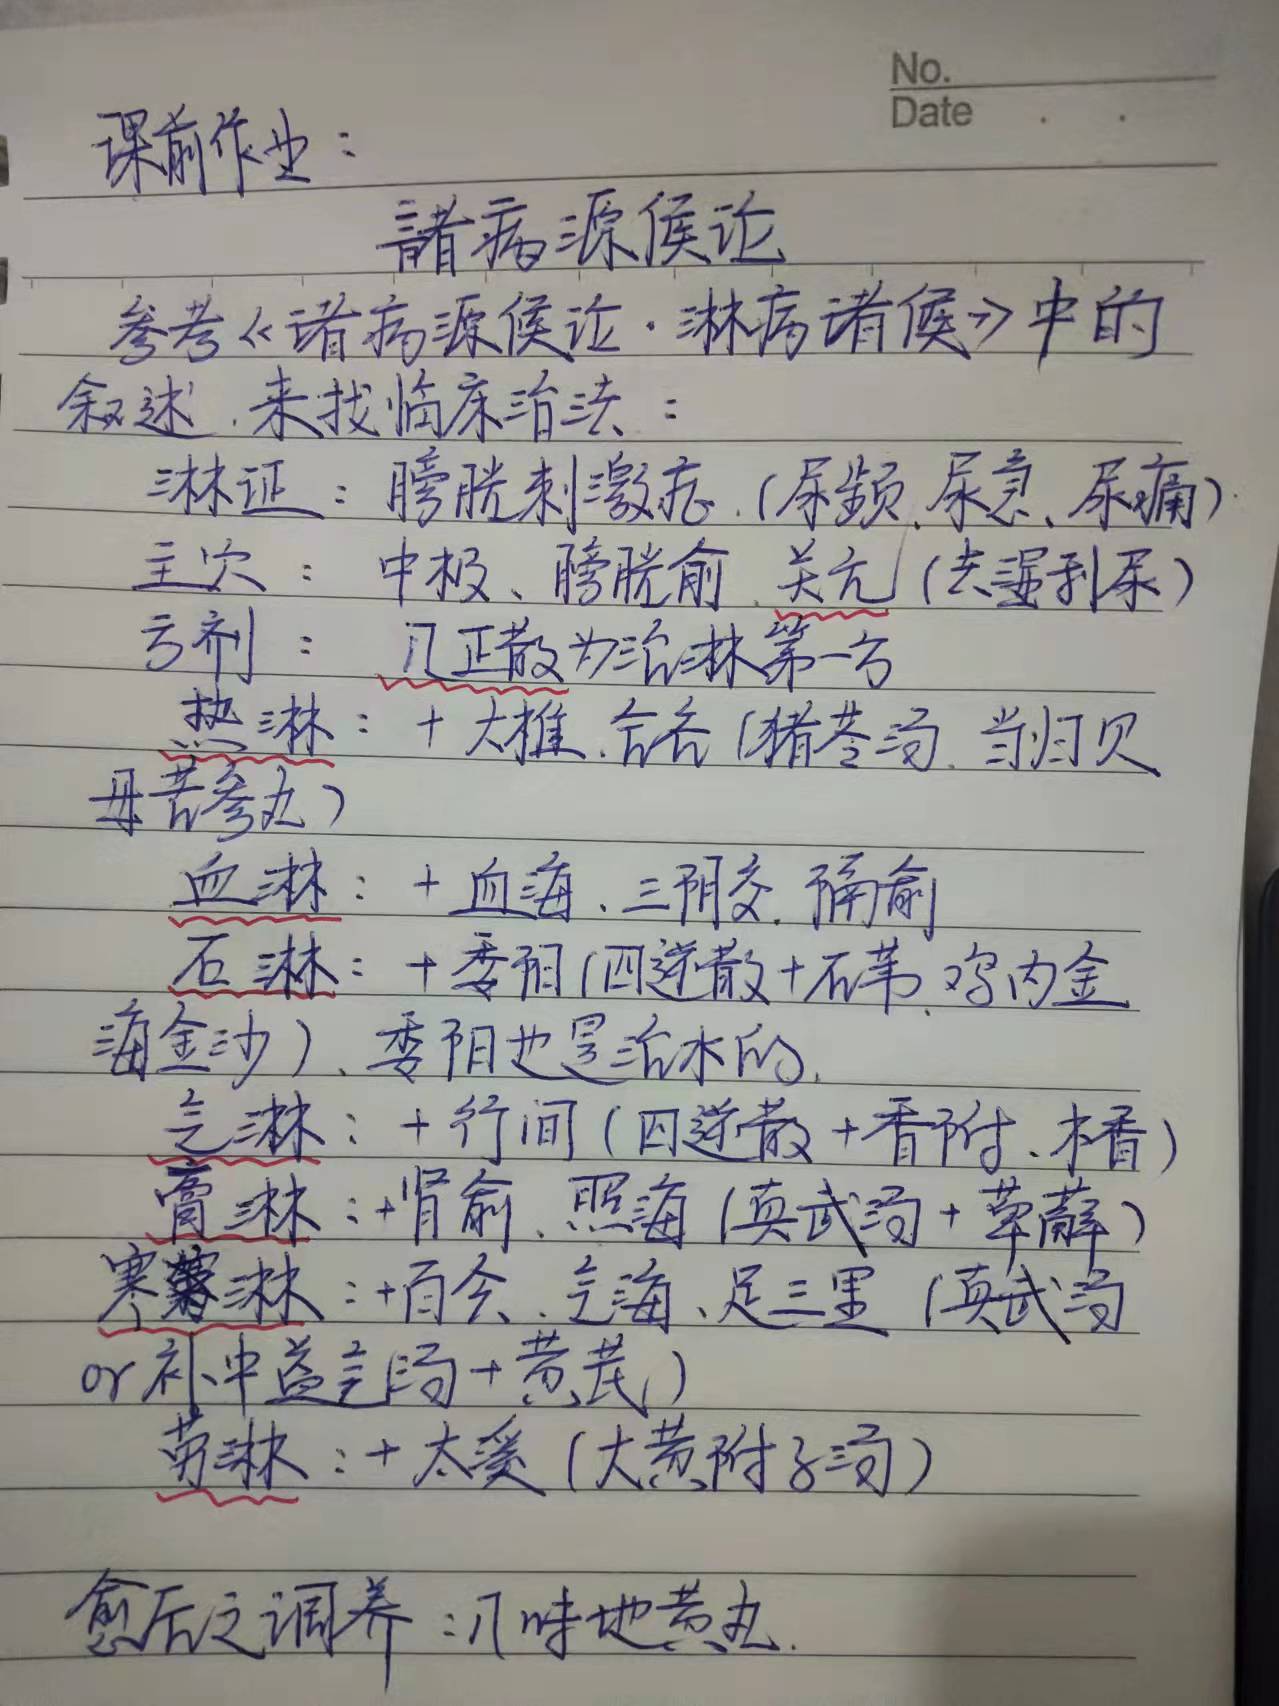 No.
Date
课前作业：
諸病源候论
参考《诸病源候论·淋病诸候》中的
叙述、来找临床治法：
淋证：膀胱刺激症（尿频、尿急、尿痛）
主穴：中极、膀胱俞、关元（去湿利尿）
方剂：八正散为治淋第一方
热淋：+大椎、合谷（猪苓汤、当归贝
母苦参丸）
血淋：+血海、三阴交、膈俞
石淋：+委阳（四逆散+石苇、鸡内金
海金沙）、委阳也是治水的.
气淋：+行间（四逆散+香附、木香）
膏淋：+肾俞、照海（真武汤+萆薢）
寒淋：+百会、气海、足三里（真武汤
or 补中益气汤+黄芪）
劳淋：+太溪（大黄附子汤）
愈后之调养：八味地黄丸.